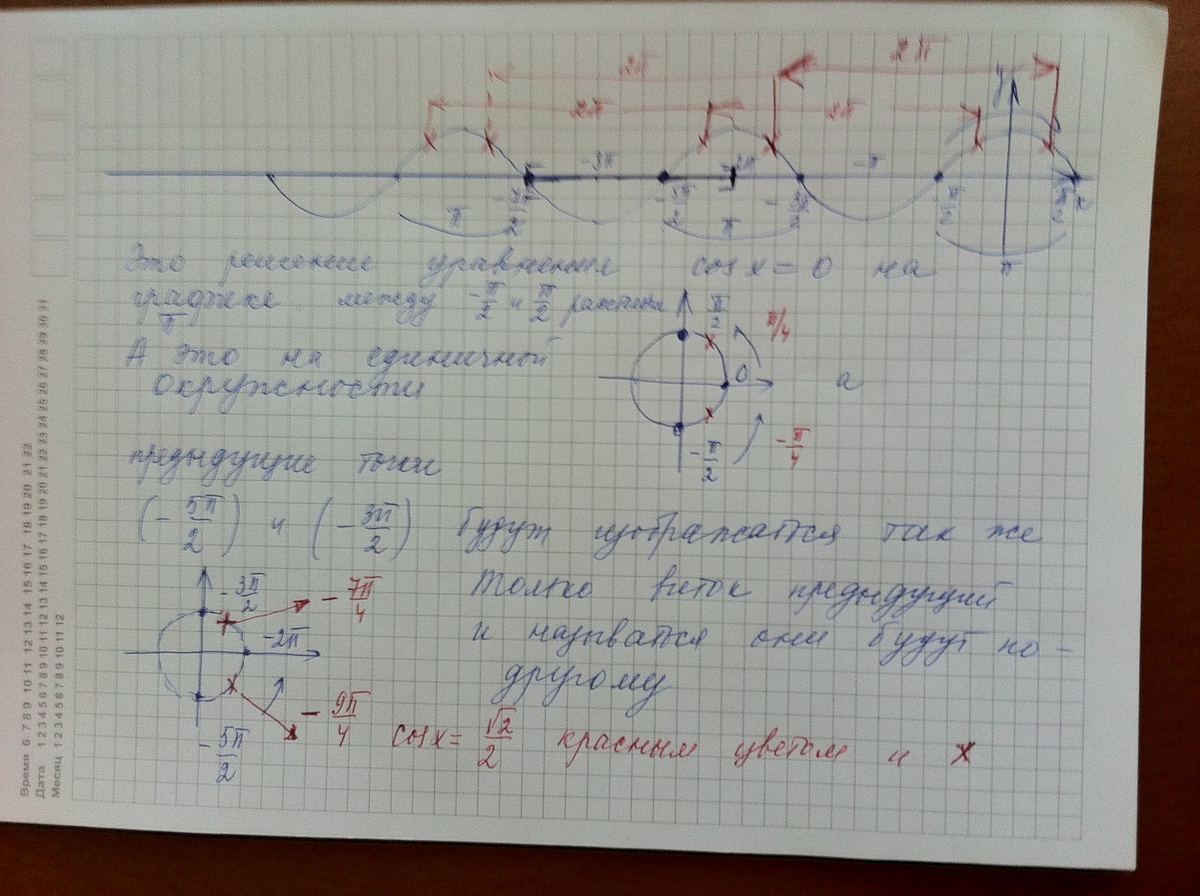 2π 2π
2π 2π
y
-3π -2π -π
-5π/2 -3π/2 -π/2 π/2 x
π π π
Это решение уравнения cos x = 0 на
графике между -π/2 и π/2
π
А это на единичной
окружности
π/2 π/4
0 а
-π/2 -π/4
предыдущие точки
(-5π/2) и (-3π/2) будут изображаться так же
только виток предыдущий
и называться они будут по-
другому
-3π/2 -7π/4
-2π
-9π/4
-5π/2
cos x = √2/2 красным цветом и x
Время 6 7 8 9 10 11 12 13 14 15 16 17 18 19 20 21 22
Дата 1 2 3 4 5 6 7 8 9 10 11 12 13 14 15 16 17 18 19 20 21 22 23 24 25 26 27 28 29 30 31
Месяц 1 2 3 4 5 6 7 8 9 10 11 12